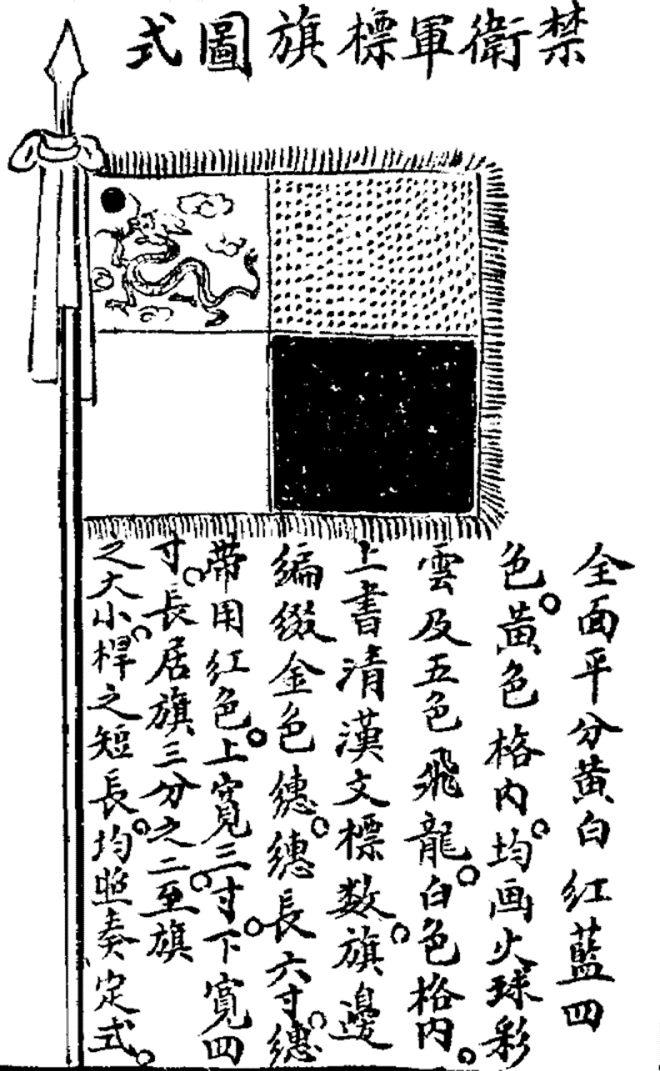 禁衛軍標旗圖式
全面平分黃白紅藍四
色。黃色格內。均画火球彩
雲及五色飛龍。白色格內。
上書清漢文標数。旗邊
編綴金色繐。繐長六寸。繐
帶用紅色。上寬三寸。下寬四
寸。長居旗三分之二。至旗
之大小。桿之短長。均照奏定式。